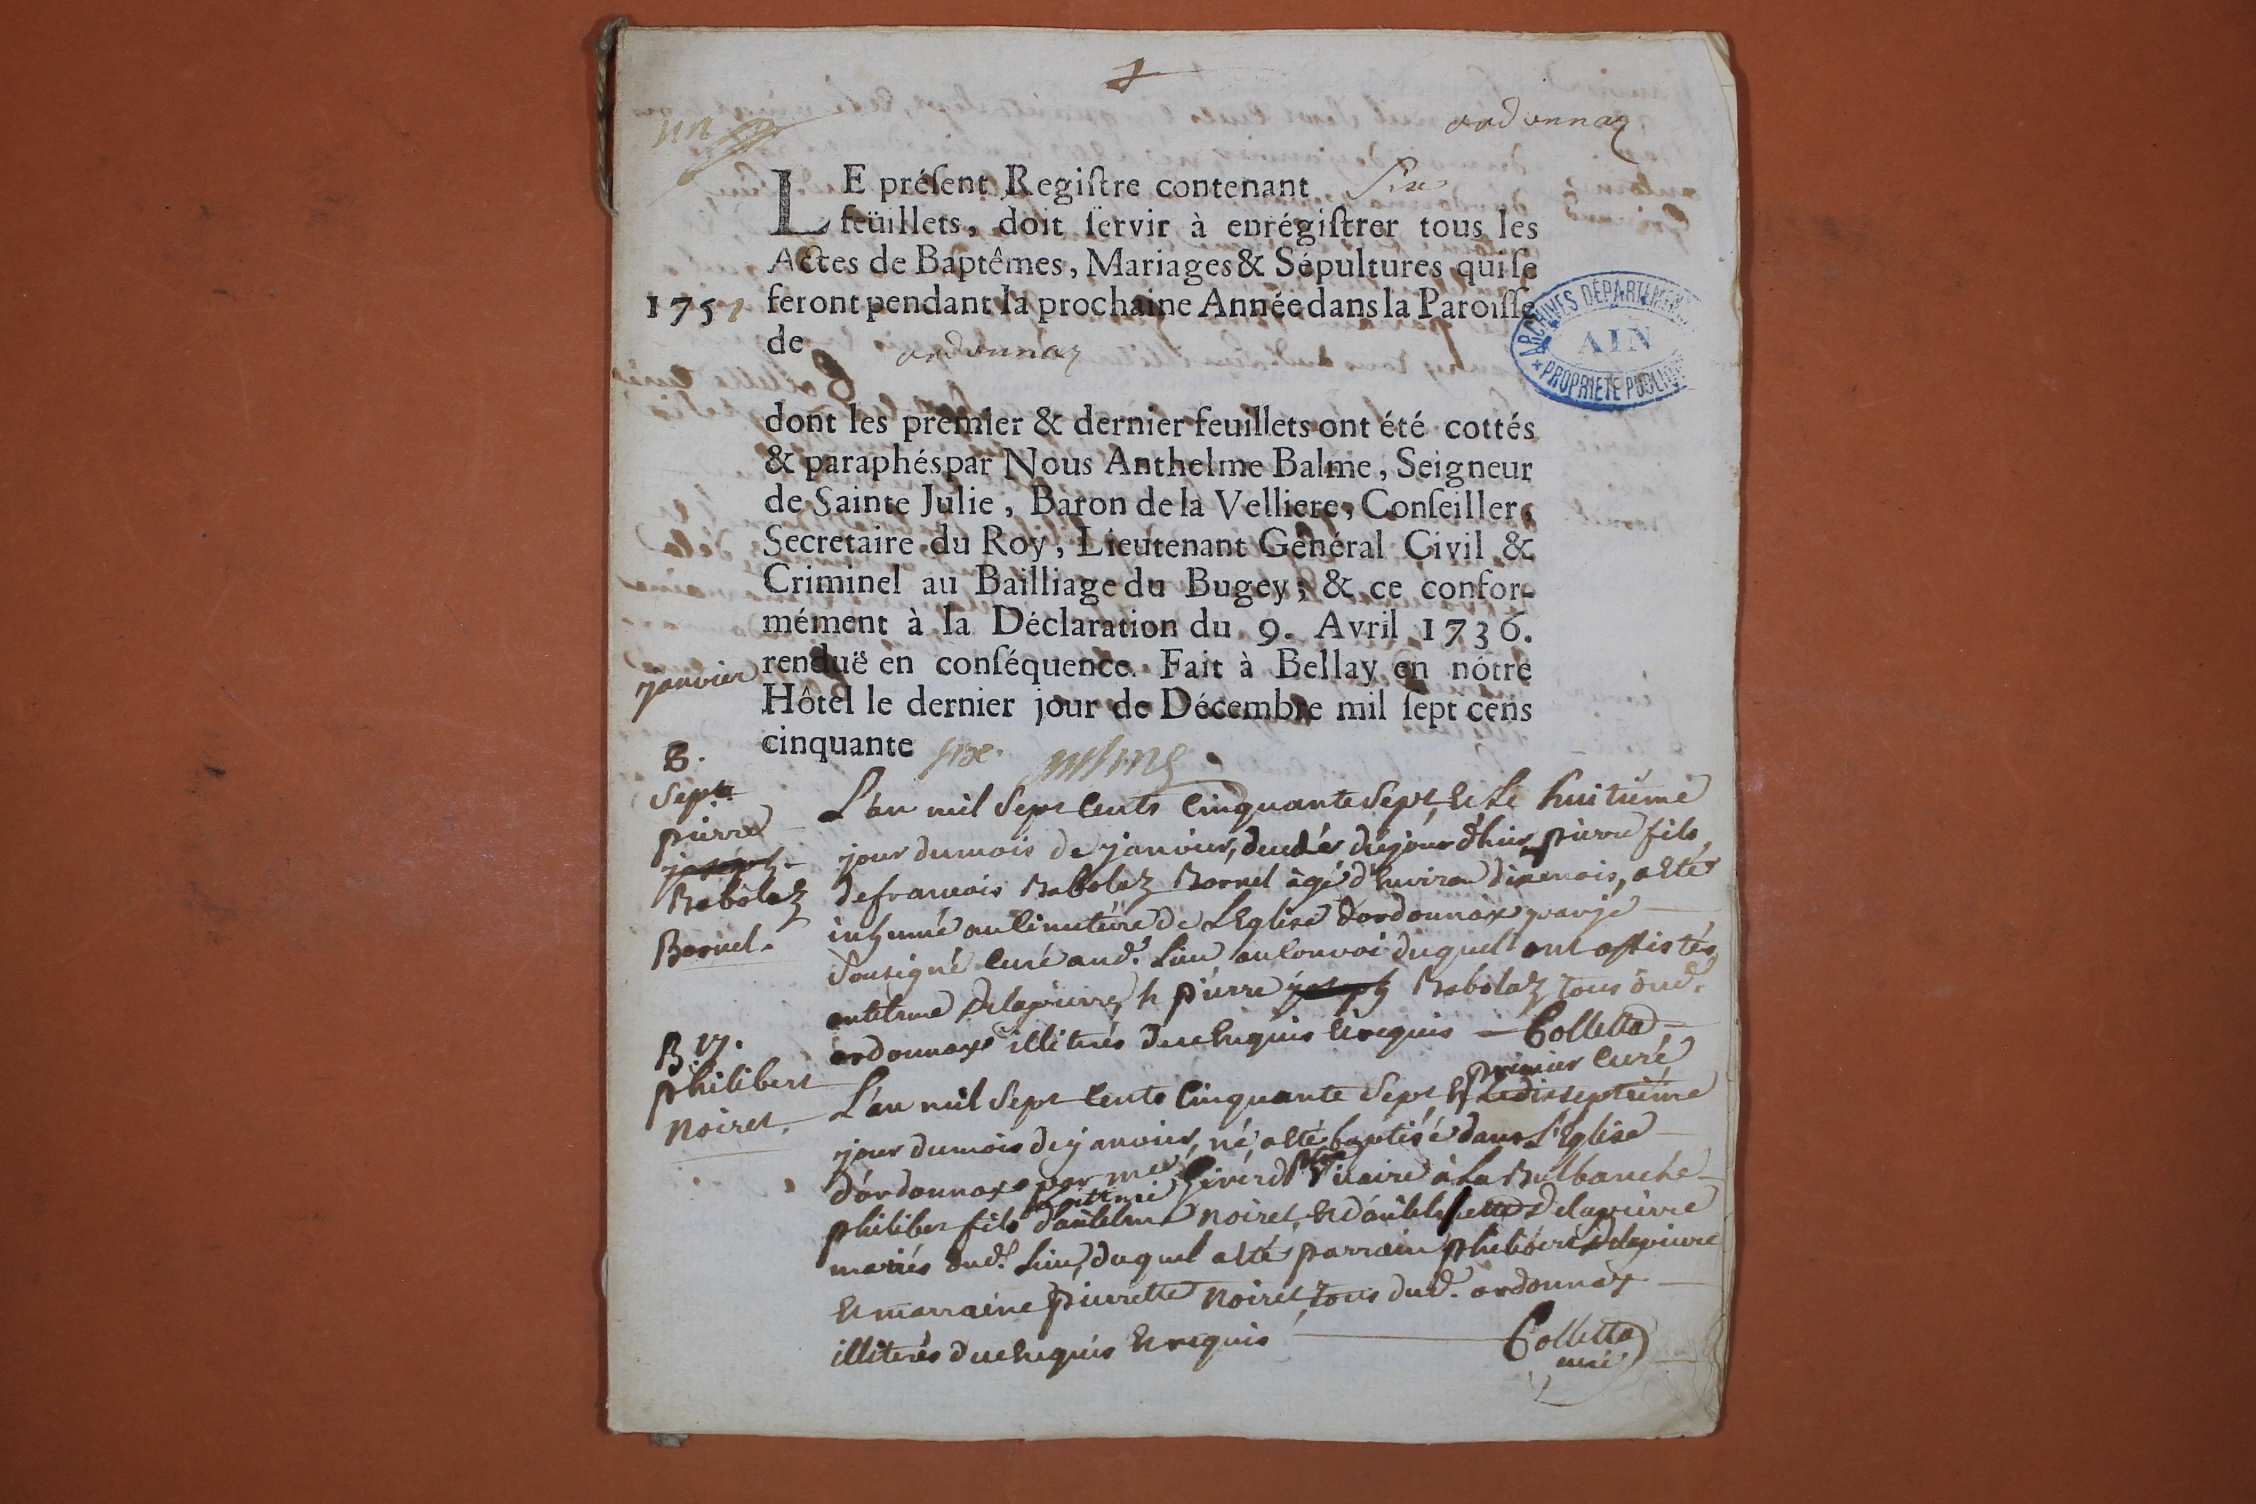 un
ordonnaz
LE préſent Regiſtre contenant six
feüillets, doit ſervir à enrégiſtrer tous les
Actes de Baptêmes, Mariages & Sépultures qui ſe
1757 feront pendant la prochaine Année dans la Paroiſſe
de ordonnaz
ARCHIVES DÉPARTEMENT
AIN
* PROPRIÉTÉ PUBLIQUE
dont les premier & dernier feuillets ont été cottés
& paraphés par Nous Anthelme Balme, Seigneur
de Sainte Julie, Baron de la Velliere, Conſeiller,
Secretaire du Roy, Lieutenant Général Civil &
Criminel au Bailliage du Bugey; & ce confor-
mément à la Déclaration du 9. Avril 1736.
renduë en conſéquence. Fait à Bellay en nôtre
janvier
Hôtel le dernier jour de Décembre mil ſept cens
cinquante six.
8.
Sept.
pierre
joseph
Babolaz
Bornel.
L'an mil Sept Cents Cinquante Sept, et le huitième
jour du mois de janvier, d'hier pierre fils
de francois Babolaz Bornel âgé d'Environ dix mois, a été
inhumé au Cimetière de L'Eglise d'ordonnax par je
Soussigné Curé aud. Lieu au Convoi duquel ont assistés
antelme Delapierre, et pierre joseph Babolaz tous dud.
ordonnax illiterés de ce Enquis et requis — Colletta
premier Curé
B. 17.
philibert
Noiret.
L'an mil Sept Cents Cinquante Sept, et Le disseptième
jour du mois de janvier, né a été baptisé dans L'Eglise
d'ordonnax par me vicaire à La Burbanche
philibert fils légitime d'antelme Noiret, et d'antelmette Delapierre
mariés dud. Lieu, duquel a été parrain philibert Delapierre
et marraine pierrette Noiret, tous dud. ordonnax
illiterés de ce Enquis et requis — Colletta
curé